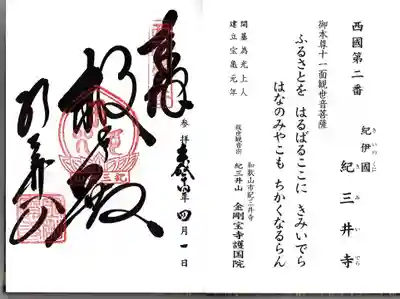 西國第二番
紀伊國 紀三井寺
きいのくに きみいでら
御本尊十一面観世音菩薩
ふるさとを はるばるここに きみいでら
はなのみやこも ちかくなるらん
開基為光上人
建立宝亀元年
救世観音宗
和歌山市紀三井寺
紀三井山 金剛宝寺護国院
奉拝
救世殿
紀三井寺
参拝
四月一日